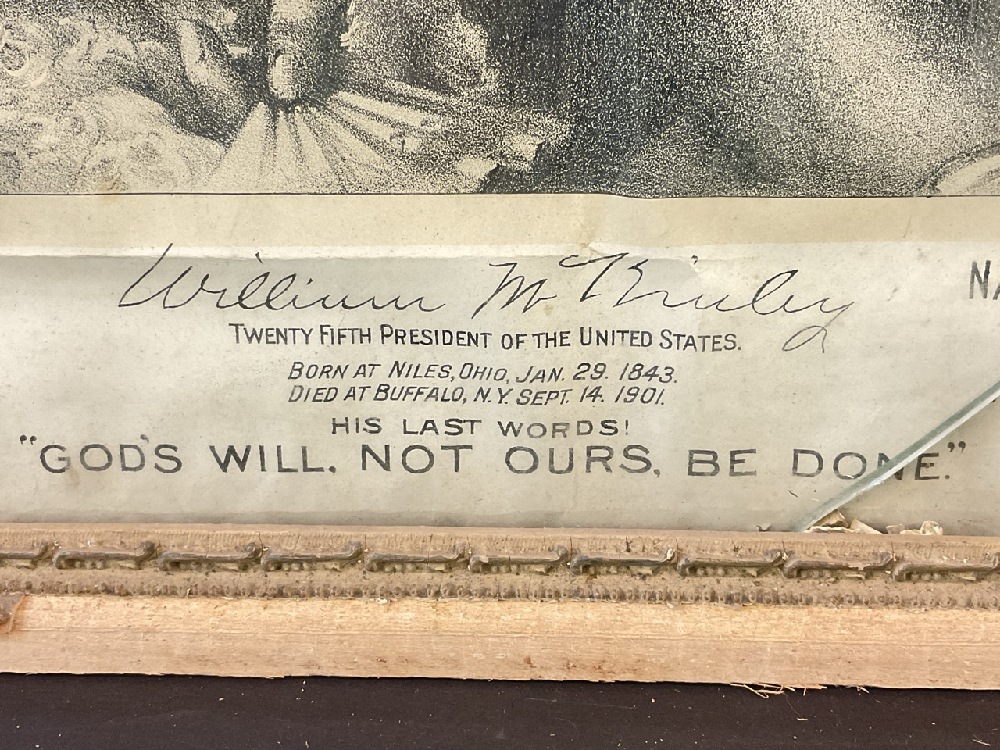 William McKinley
TWENTY FIFTH PRESIDENT OF THE UNITED STATES.
BORN AT NILES, OHIO, JAN. 29. 1843.
DIED AT BUFFALO, N.Y. SEPT. 14. 1901.
HIS LAST WORDS!
"GOD'S WILL. NOT OURS, BE DONE."